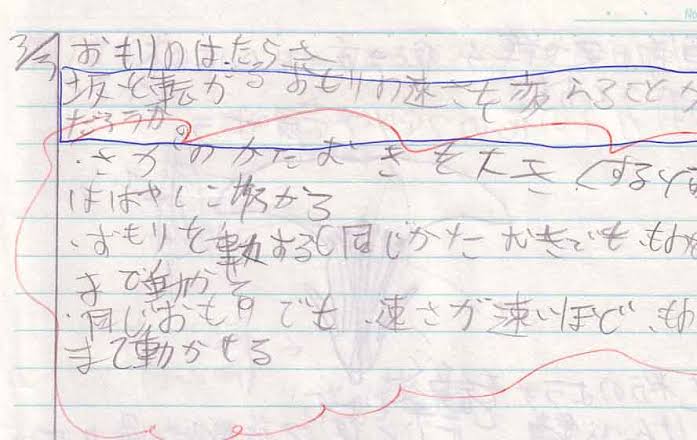 3/3 おもりのはたらき
坂を転がるおもりの速さを変えることが
だろうか。
・さかのかたむきを大きくすると
ははやく転がる
・おもりを するも同じかたむきでも、もの
まで動かせる
・同じおもりでも、速さが速いほど、もの
まで動かせる